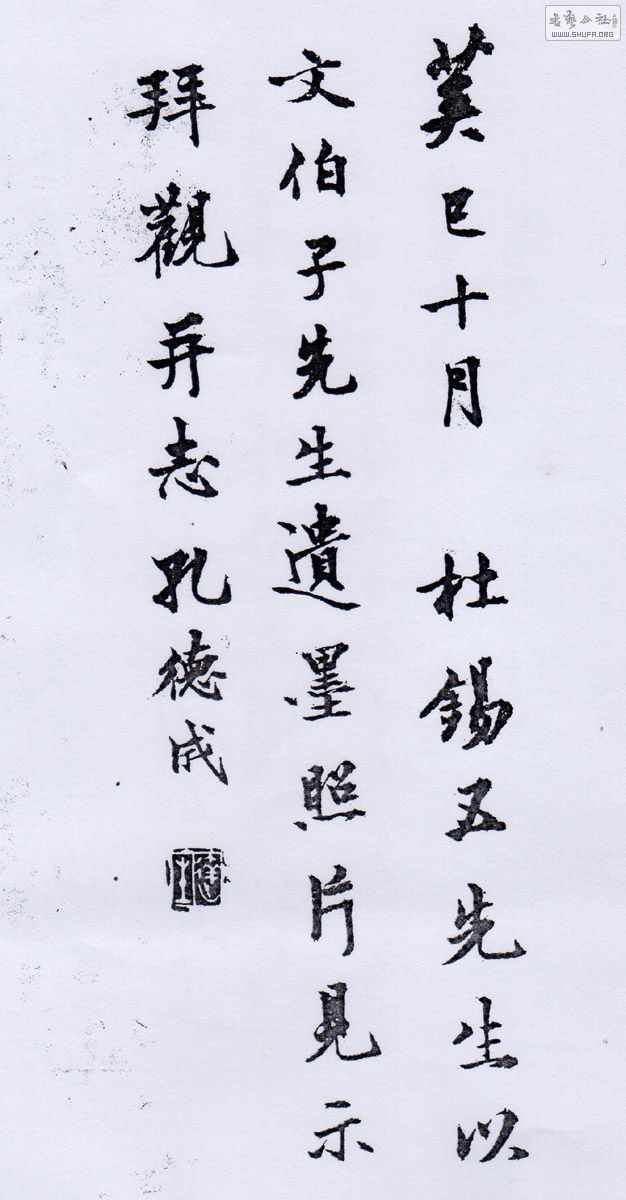 書藝公社
WWW.SHUFA.ORG
癸巳十月 杜錫五先生以
文伯子先生遺墨照片見示
拜觀并志孔德成